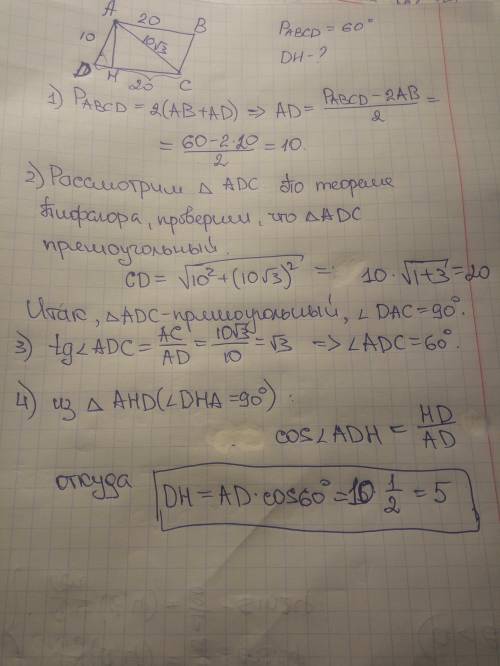 A 20 B
10 10√3
D H 20 C
P_ABCD = 60°
DH - ?
1) P_ABCD = 2(AB+AD) => AD = (P_ABCD - 2AB)/2 =
= (60-2·20)/2 = 10.
2) Рассмотрим △ ADC По теореме
Пифагора, проверим, что △ADC
прямоугольный.
CD = √(10² + (10√3)²) = 10·√(1+3) = 20
Итак, △ADC - прямоугольный, ∠DAC = 90°.
3) tg∠ADC = AC/AD = 10√3/10 = √3 => ∠ADC = 60°.
4) из △ AHD (∠DHA = 90°) :
cos∠ADH = HD/AD
откуда
DH = AD·cos60° = 10·1/2 = 5